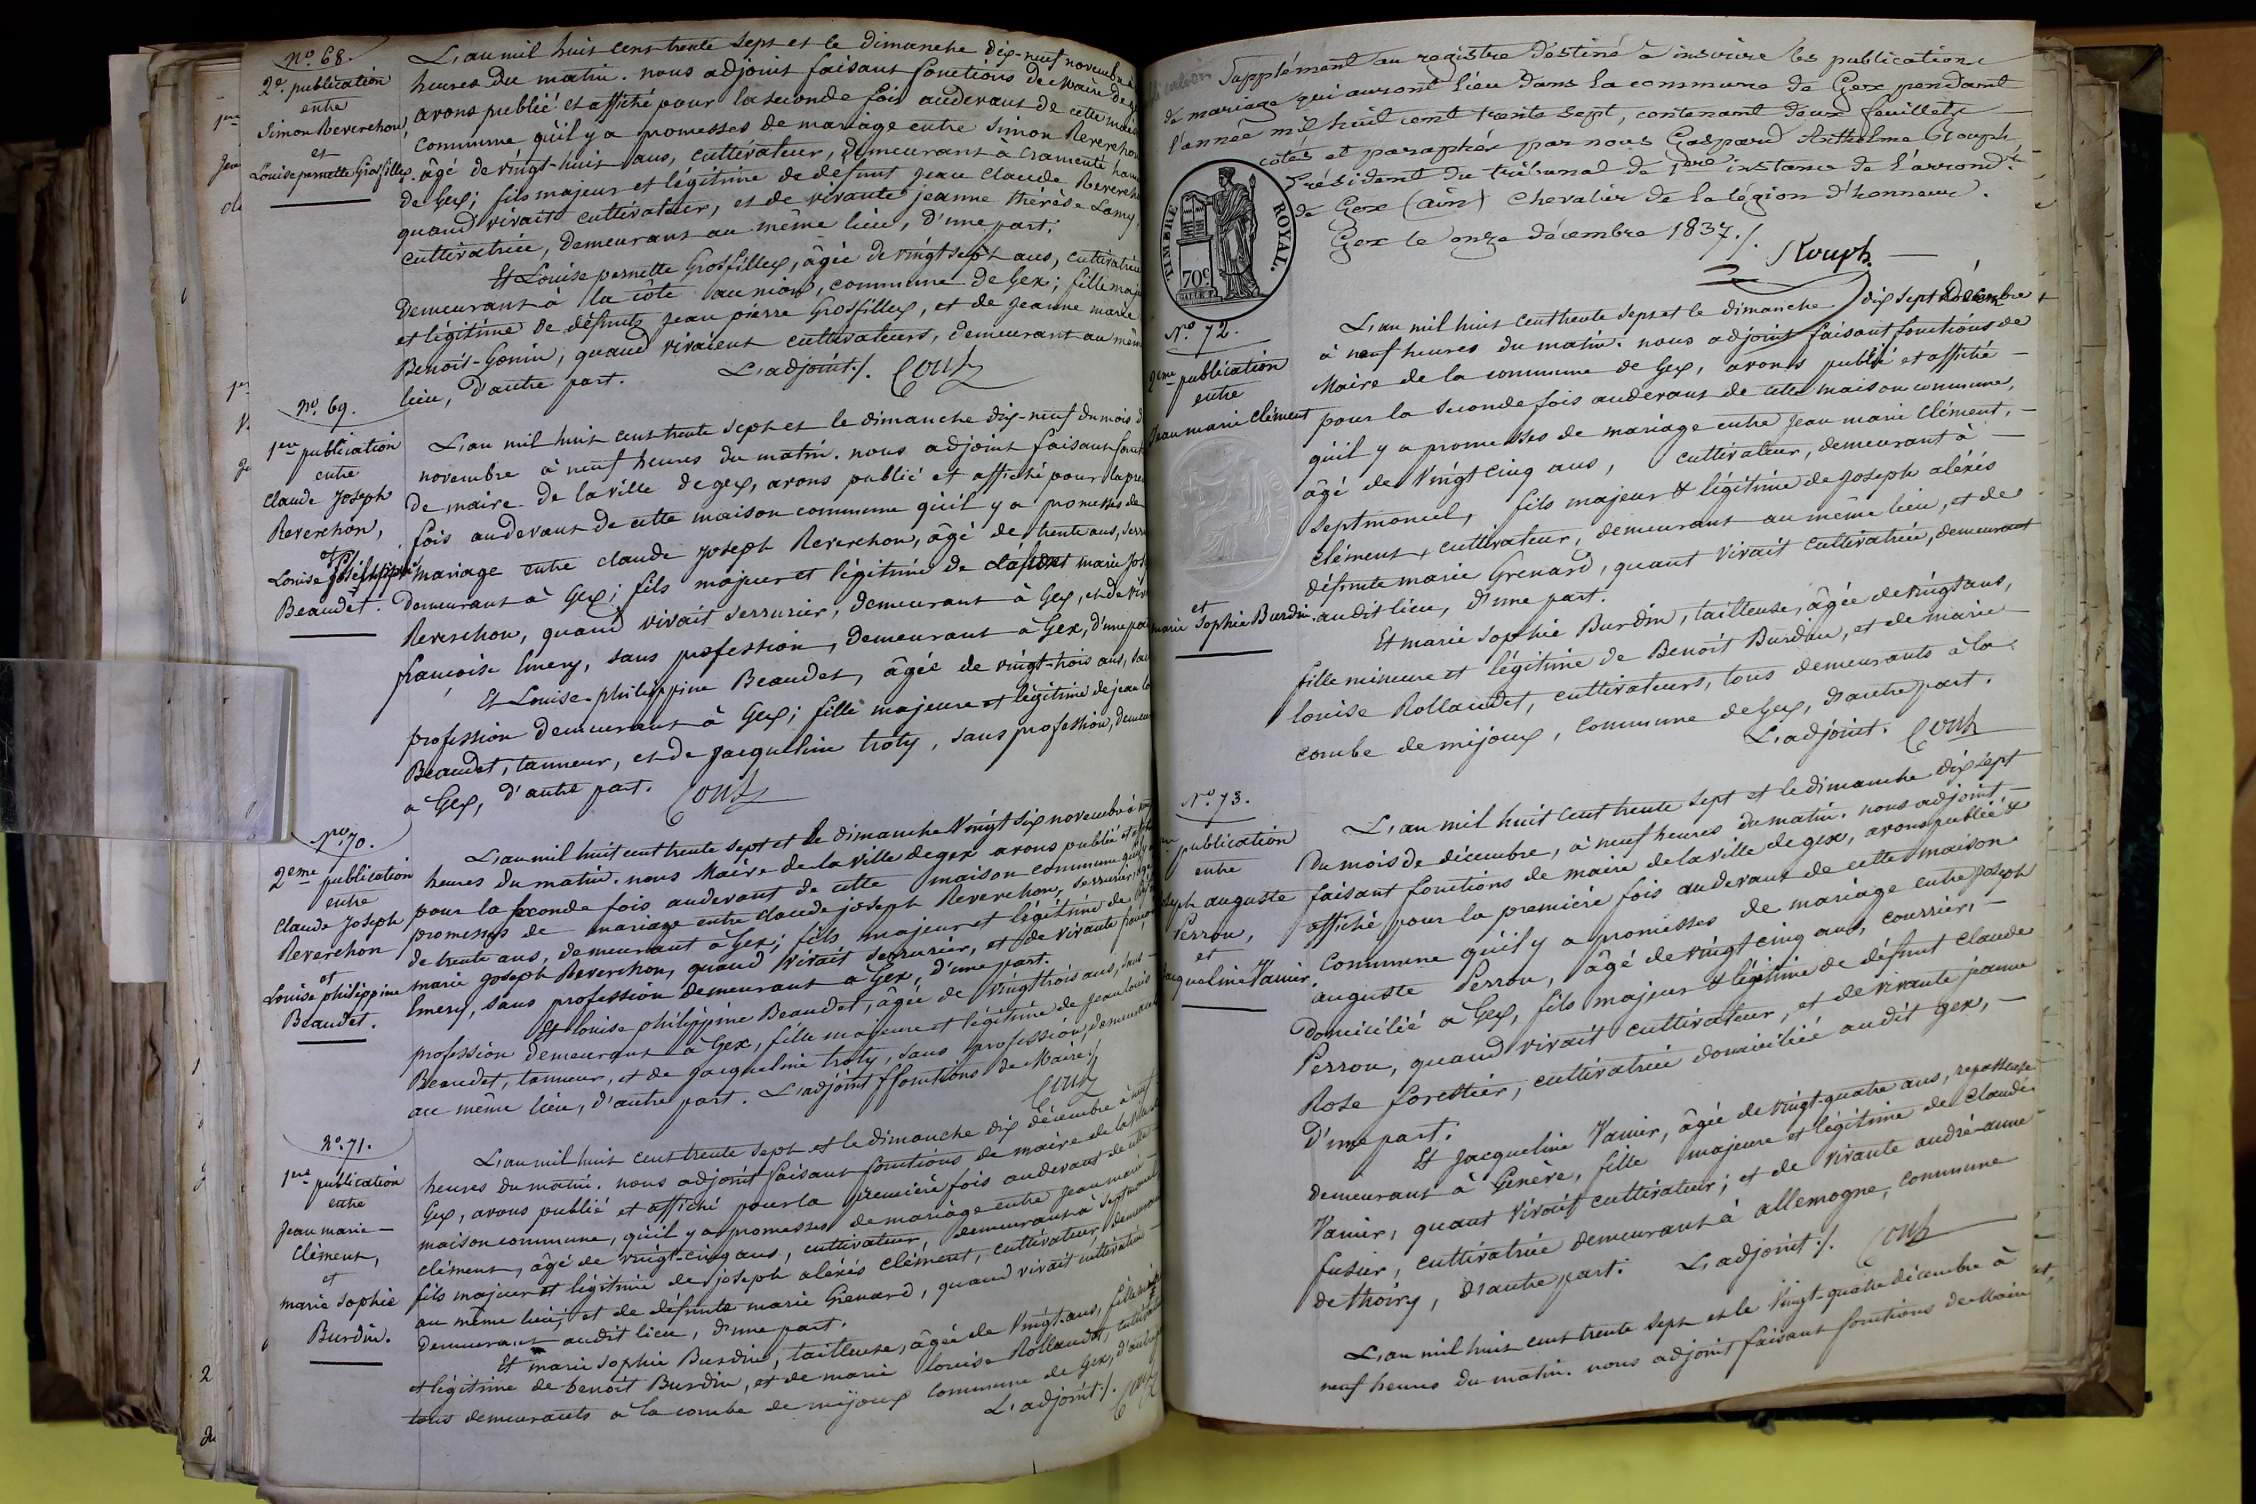 No. 68.
2e. publication
entre
Simon Reverchon,
et
Louise pernette Grosfillex.
L'an mil huit cent trente sept et le dimanche dix-neuf novembre à
heures du matin. nous adjoint faisant fonctions de Maire de
avons publié et affiché pour la seconde fois audevant de cette maison
commune, qu'il y a promesses de mariage entre Simon Reverchon
âgé de vingt-huit ans, cultivateur, demeurant à
de Gex; fils majeur et légitime de défunt jean Claude Reverchon
quand vivait cultivateur, et de vivante jeanne thérèse Lamy,
cultivatrice, demeurant au même lieu, d'une part.
Et Louise pernette Grosfillex, âgée de vingt sept ans, cultivatrice
demeurant à la côte, commune de Gex; fille maje
et légitime de défunts jean pierre Grosfillex, et de jeanne marie
Benoit-Gonin, quand vivaient cultivateurs, demeurant au même
lieu, d'autre part. L'adjoint./.
No. 69.
1ere publication
entre
Claude Joseph
Reverchon,
et
Louise
Beaudet.
L'an mil huit cent trente sept et le dimanche dix-neuf du mois d
novembre à neuf heures du matin. nous adjoint faisant fonct
de maire de la ville de gex, avons publié et affiché pour la pre
fois audevant de cette maison commune qu'il y a promesses de
mariage entre claude joseph Reverchon, âgé de trente ans, serru
demeurant à Gex; fils majeur et légitime de défunt marie Jos
Reverchon, quand vivait serrurier, demeurant à Gex, et de viv
françoise Emery, sans profession, demeurant à Gex, d'une pa
Et Louise-philippine Beaudet, âgée de vingt-trois ans, sa
profession demeurant à Gex; fille majeure et légitime de jean lo
Beaudet, tanneur, et de jacqueline troty, sans profession, demeu
a Gex, d'autre part.
No. 70.
2eme publication
entre
Claude Joseph
Reverchon
et
Louise philippine
Beaudet.
L'an mil huit cent trente sept et le dimanche Vingt six novembre à
heures du matin. nous Maire de la ville de gex avons publié et
pour la seconde fois audevant de cette maison commune
promesses de mariage entre claude joseph Reverchon, serrurier,
de trente ans, demeurant à Gex; fils majeur et légitime de
marie joseph Reverchon, quand vivait serrurier, et de vivante
Emery, sans profession demeurant à Gex, d'une part.
Et louise philippine Beaudet, âgée de vingt trois ans, sans
profession demeurant à Gex, fille majeure et légitime de jean louis
Beaudet, tanneur, et de jacqueline troty, sans profession, demeurant
au même lieu, d'autre part. L'adjoint ffonctions de Maire./.
No. 71.
1ere publication
entre
Jean marie
Clément,
et
marie Sophie
Burdin.
L'an mil huit cent trente sept et le dimanche dix décembre à neuf
heures du matin. nous adjoint faisant fonctions de maire de la
Gex, avons publié et affiché pour la première fois audevant de cette
maison commune, qu'il y a promesses de mariage entre jean marie
clément, âgé de vingt-cinq ans, cultivateur, demeurant à septmoncel
fils majeur et légitime de joseph aléxis clément, cultivateur, demeurant
au même lieu; et de défunte marie Grenard, quand vivait cultivatrice
demeurant audit lieu, d'une part.
Et marie Sophie Burdin, tailleuse, âgée de vingt ans, fille
et légitime de benoit Burdin, et de marie louise Rollandet,
tous demeurants à la combe de mijoux commune de Gex,
L'adjoint./.
Supplément au registre destiné à inscrire les publications
de mariage qui auront lieu dans la commune de Gex pendant
l'année mil huit cent trente sept, contenant deux feuillets
cotés et paraphés par nous Gaspard Anthelme Rouph
Président du tribunal de 1ere instance de l'arrondt.
de Gex (ain) Chevalier de la légion d'honneur.
Gex le onze décembre 1837./.
Rouph.
TIMBRE ROYAL.
70c.
No. 72.
2eme publication
entre
Jean marie Clément
et
marie Sophie Burdin.
L'an mil huit cent trente sept et le dimanche dix sept décembre
à neuf heures du matin. nous adjoint faisant fonctions de
Maire de la commune de Gex, avons publié et affiché
pour la seconde fois audevant de cette maison commune,
qu'il y a promesses de mariage entre Jean marie Clément,
âgé de vingt cinq ans, cultivateur, demeurant à
septmoncel, fils majeur & légitime de Joseph aléxis
Clément, cultivateur, demeurant au même lieu, et de
défunte marie Grenard, quant vivait cultivatrice, demeurant
audit lieu, d'une part.
Et marie Sophie Burdin, tailleuse, âgée de vingt ans,
fille mineure et légitime de Benoit Burdin, et de marie
louise Rollandet, cultivateurs, tous demeurants à la
combe de mijoux, commune de Gex, d'autre part.
L'adjoint.
No. 73.
publication
entre
auguste
Perrou,
et
Vanier.
L'an mil huit cent trente sept et le dimanche dix sept
du mois de décembre, à neuf heures du matin. nous adjoint
faisant fonctions de maire de la ville de gex, avons publié &
affiché pour la première fois audevant de cette maison
commune qu'il y a promesses de mariage entre Joseph
auguste Perrou, âgé de vingt cinq ans, courrier,
domicilié à Gex, fils majeur & légitime de défunt Claude
Perrou, quand vivait cultivateur, et de vivante jeanne
Rose forestier, cultivatrice domiciliée audit gex,
d'une part.
Et Jacqueline Vanier, âgée de vingt-quatre ans, repasseuse
demeurant à Genève, fille majeure et légitime de Claude
Vanier, quant vivait cultivateur; et de vivante andré-anne
fusier, cultivatrice demeurant à allemogne, commune
de thoiry, d'autre part. L'adjoint./.
L'an mil huit cent trente sept et le Vingt-quatre décembre à
neuf heures du matin. nous adjoint faisant fonctions de Maire